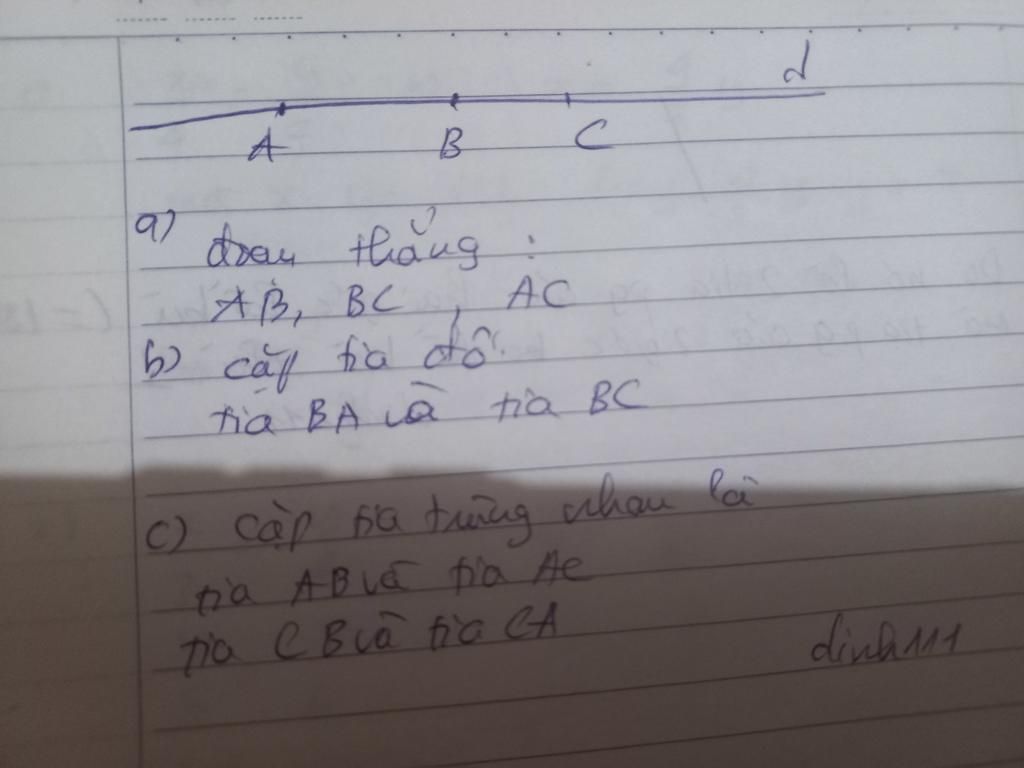 d
A B C
a) đoạn thẳng :
AB, BC, AC
b) cặp tia đối
tia BA và tia BC
c) cặp tia trùng nhau là
tia AB và tia AC
tia CB và tia CA
dinh111